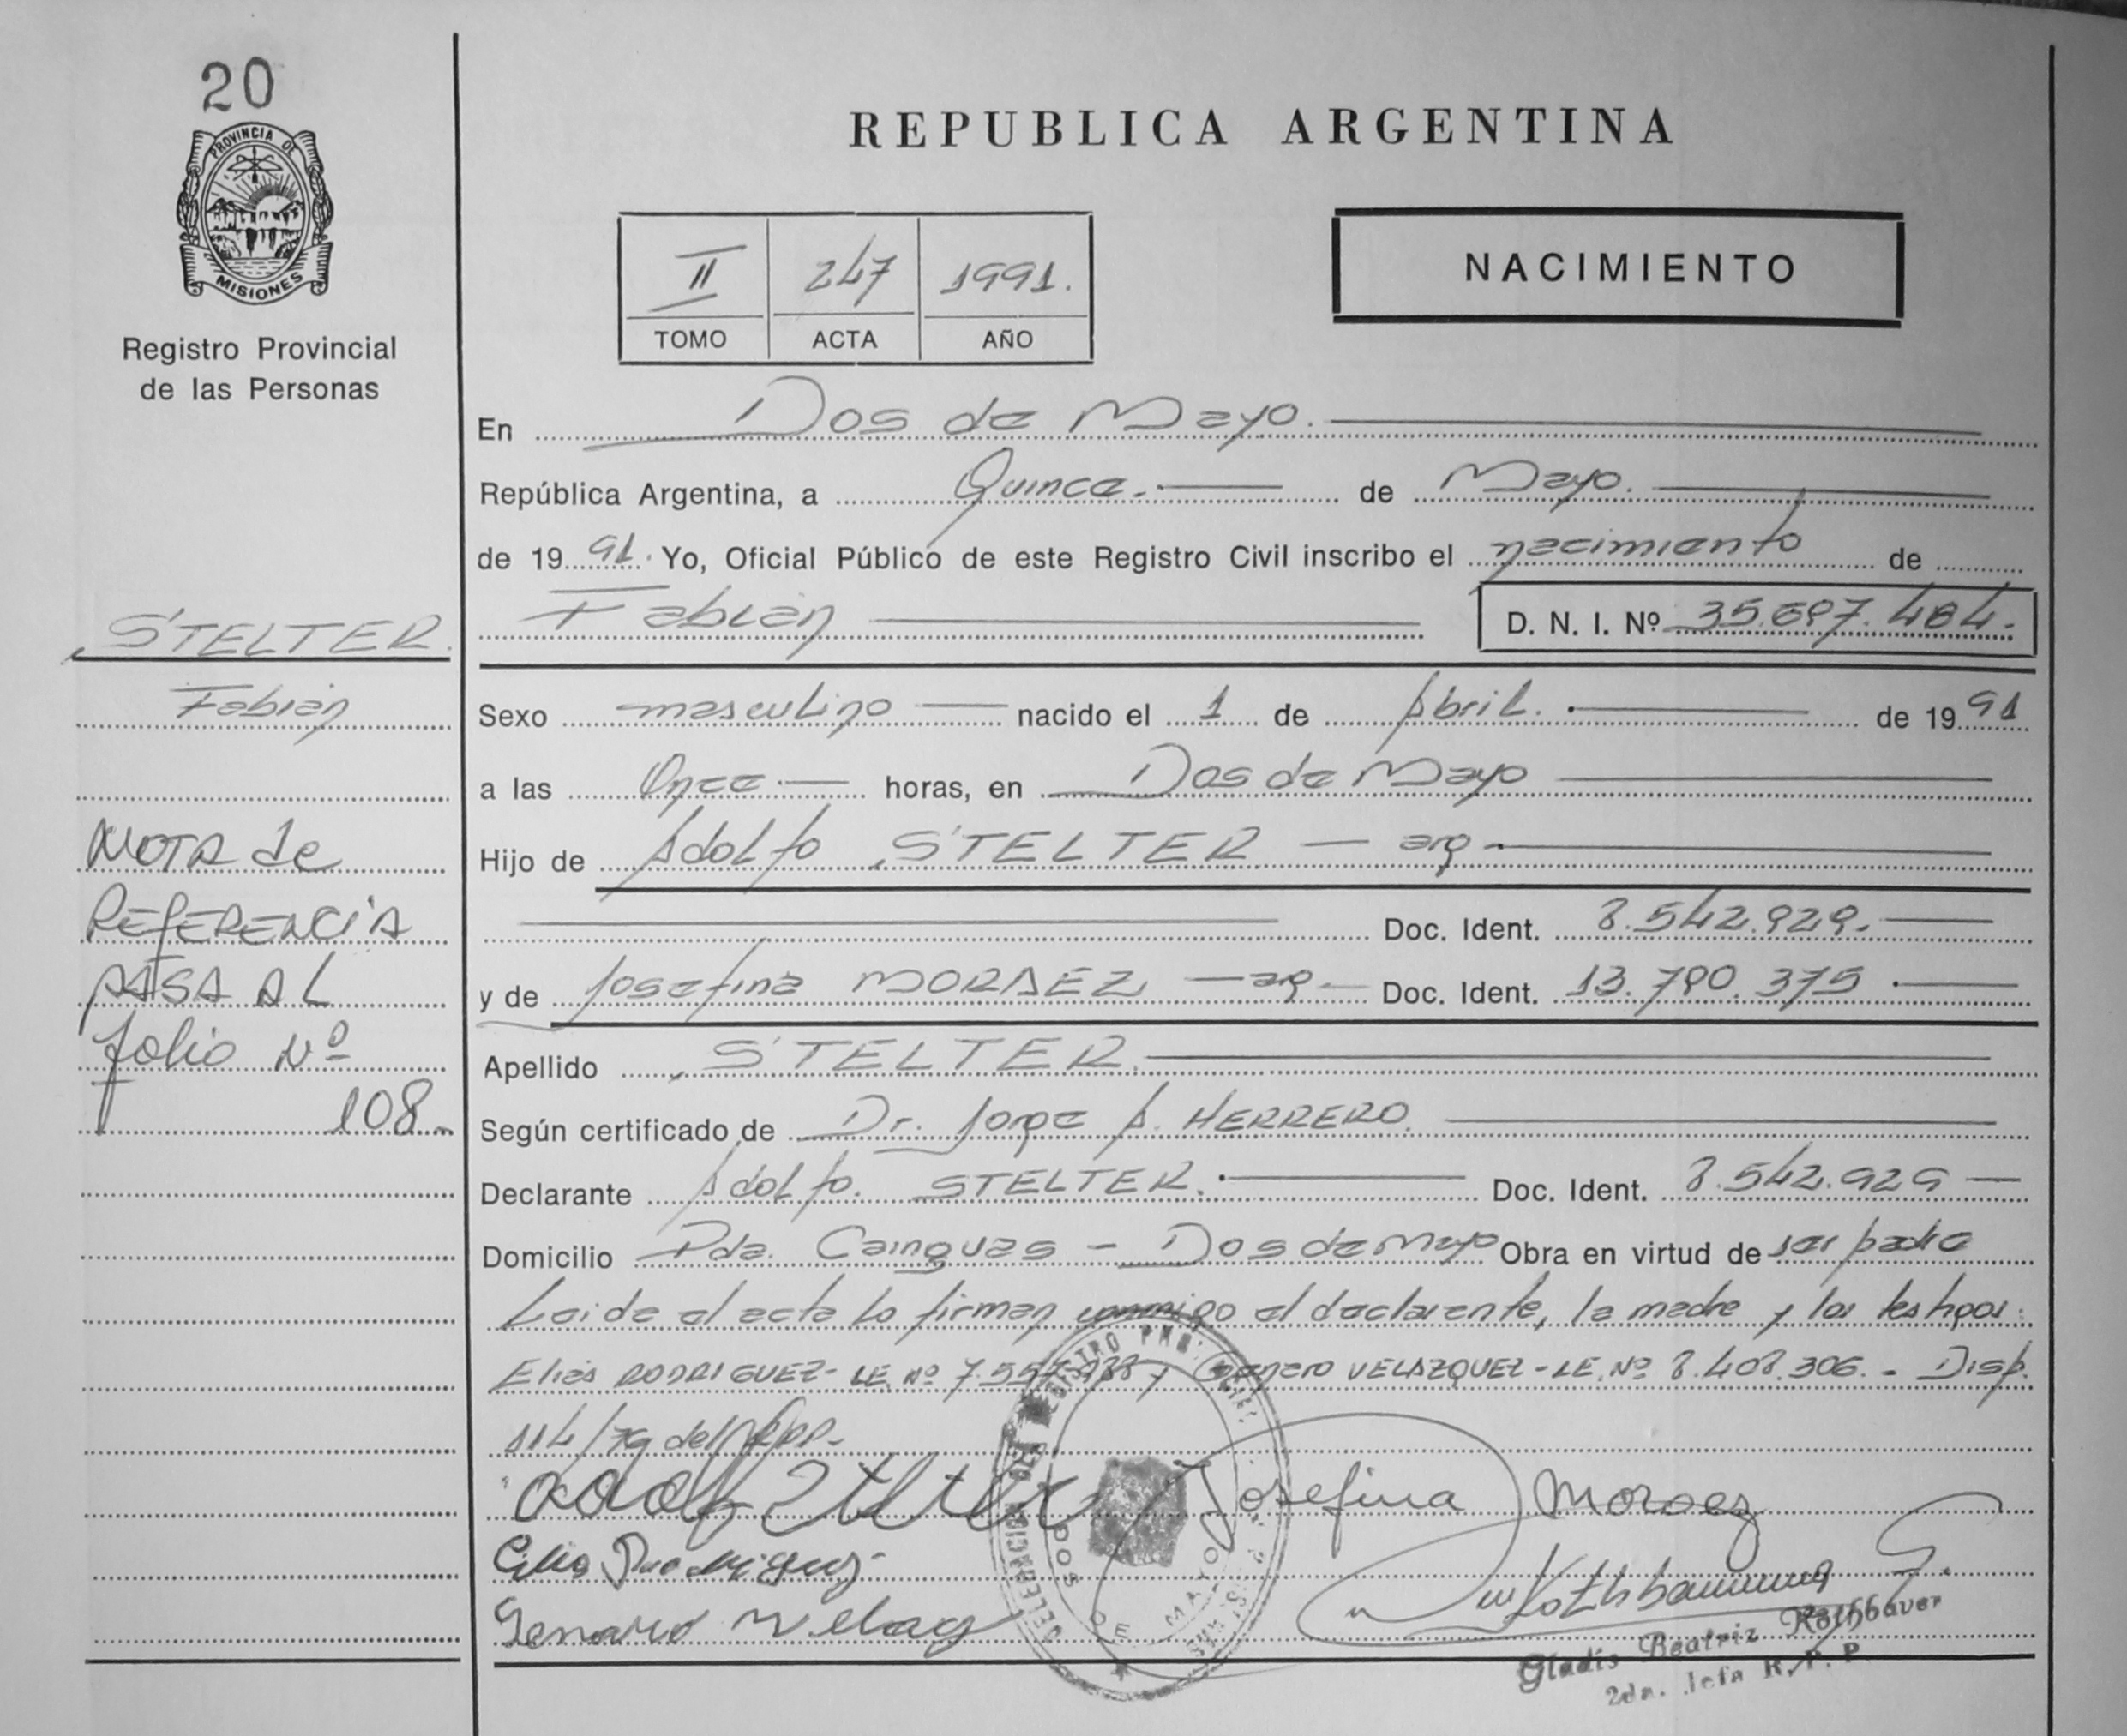 20
PROVINCIA DE
MISIONES
Registro Provincial
de las Personas
STELTER.
Fabián
NOTA de
REFERENCIA
PASA AL
folio Nº
108.
REPUBLICA ARGENTINA
II 247 1991.
TOMO ACTA AÑO
NACIMIENTO
En Dos de Mayo.
República Argentina, a Quince. de Mayo.
de 1991. Yo, Oficial Público de este Registro Civil inscribo el nacimiento de
Fabián D. N. I. Nº 35.697.484.
Sexo masculino nacido el 1 de Abril. de 1991
a las Once horas, en Dos de Mayo
Hijo de Adolfo STELTER — arg.
Doc. Ident. 8.542.929.
y de Josefina MORAEZ — arg. Doc. Ident. 13.790.375
Apellido STELTER.
Según certificado de Dr. Jorge A. HERRERO.
Declarante Adolfo. STELTER. Doc. Ident. 8.542.929
Domicilio Pda. Cainguas - Dos de Mayo Obra en virtud de ser padre
Leida el acta lo firman conmigo el declarante, la madre y los testigos:
Elias RODRIGUEZ- LE. Nº y Genaro VELAZQUEZ - LE. Nº 8.408.306. - Disp.
114/79 del
DELEGACION DEL REGISTRO
DOS DE MAYO
Josefina Moraez
Elias Rodriguez
Genaro
Rothbauer G.
Gladis Beatriz Rothbauer
2da. Jefa R. P. P.